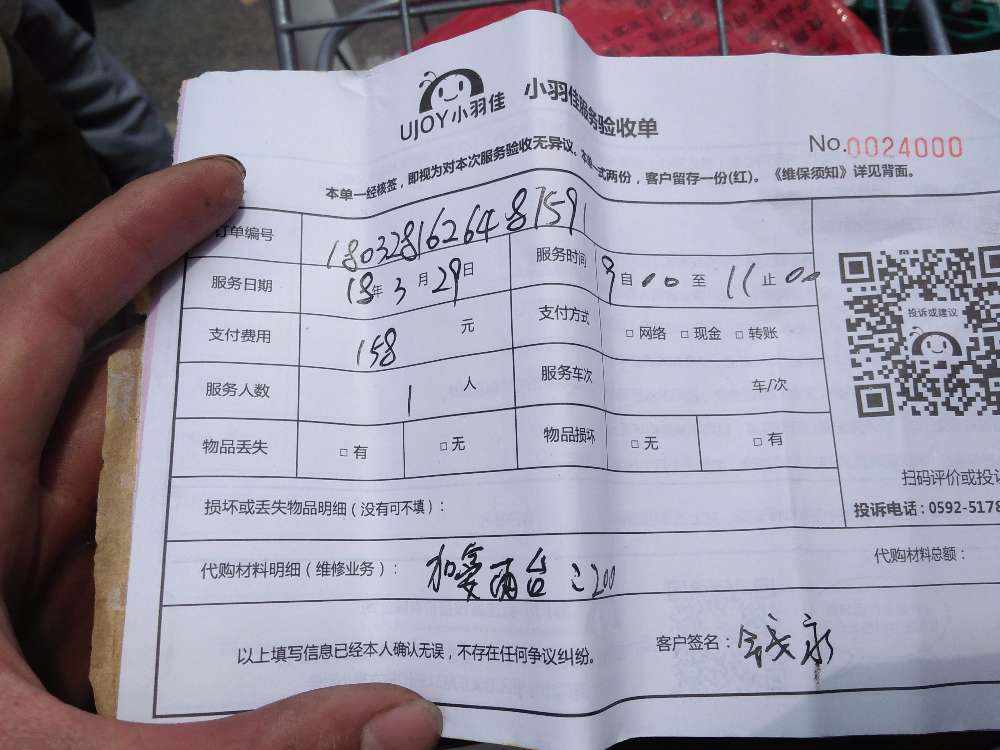 UJOY小羽佳 小羽佳服务验收单
No.0024000
本单一经核签，即视为对本次服务验收无异议。本单一式两份，客户留存一份(红)。《维保须知》详见背面。
订单编号 1803281626487591
服务日期 18年3月29日 服务时间 9自00至11止00
支付费用 158元 支付方式 □网络 □现金 □转账
投诉或建议
服务人数 1人 服务车次 车/次
物品丢失 □有 □无 物品损坏 □无 □有
扫码评价或投诉
损坏或丢失物品明细（没有可不填）：
投诉电话：0592-5178
代购材料明细（维修业务）： 两台 200 代购材料总额：
以上填写信息已经本人确认无误，不存在任何争议纠纷。 客户签名：